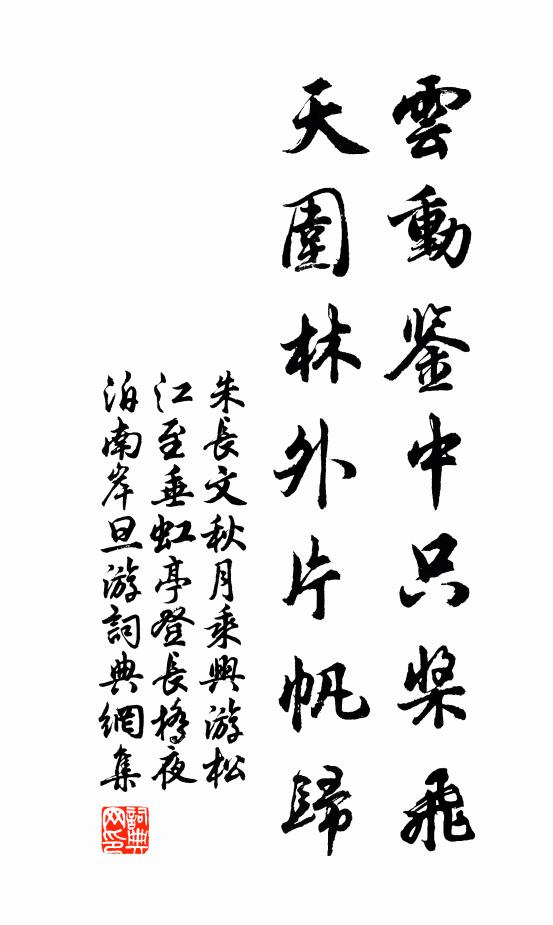 雲動鉴中只桨飛
天圍林外片帆歸
朱長文秋月乘興游松
江至垂虹亭登長橋夜
泊南岸旦游詞典網集
詞典网印